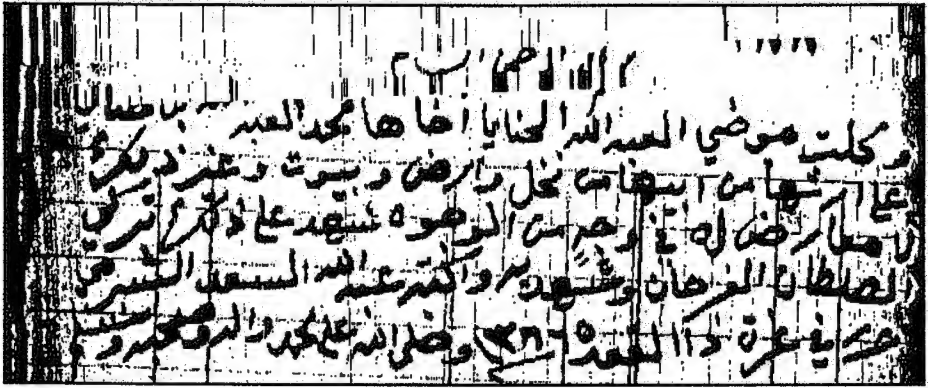 وكلت موضي العبد الله الحنايا اخاها محمد العبد
على ارثها من ابيها من نخل وارض وبيوت وغير ذلك
لا معارض له في وجه من الوجوه شهد على ذلك تركي
الصلطان الفرحان وشهد به وكتبه عبد الله السعد الشبرمي
حرر في غرة ذا القعدة ١٣٦٥ وصلى الله على محمد واله وصحبه وسلم